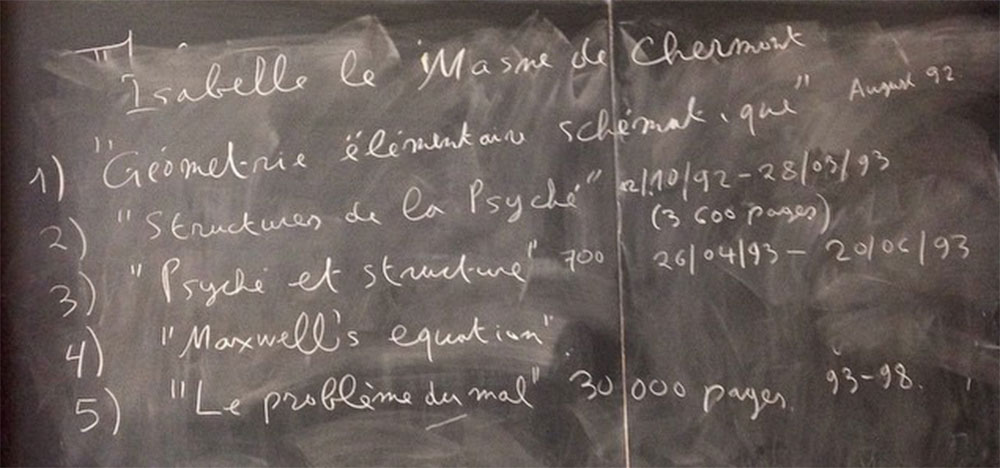 Isabelle le Masne de Chermont
1) "Géometrie élémentaire schématique" August 92
2) "Structures de la Psyché" 12/10/92 - 28/03/93
(3 600 pages)
3) "Psyché et structure" 700 26/04/93 - 20/06/93
4) "Maxwell's equation"
5) "Le problème du mal" 30 000 pages 93-98.